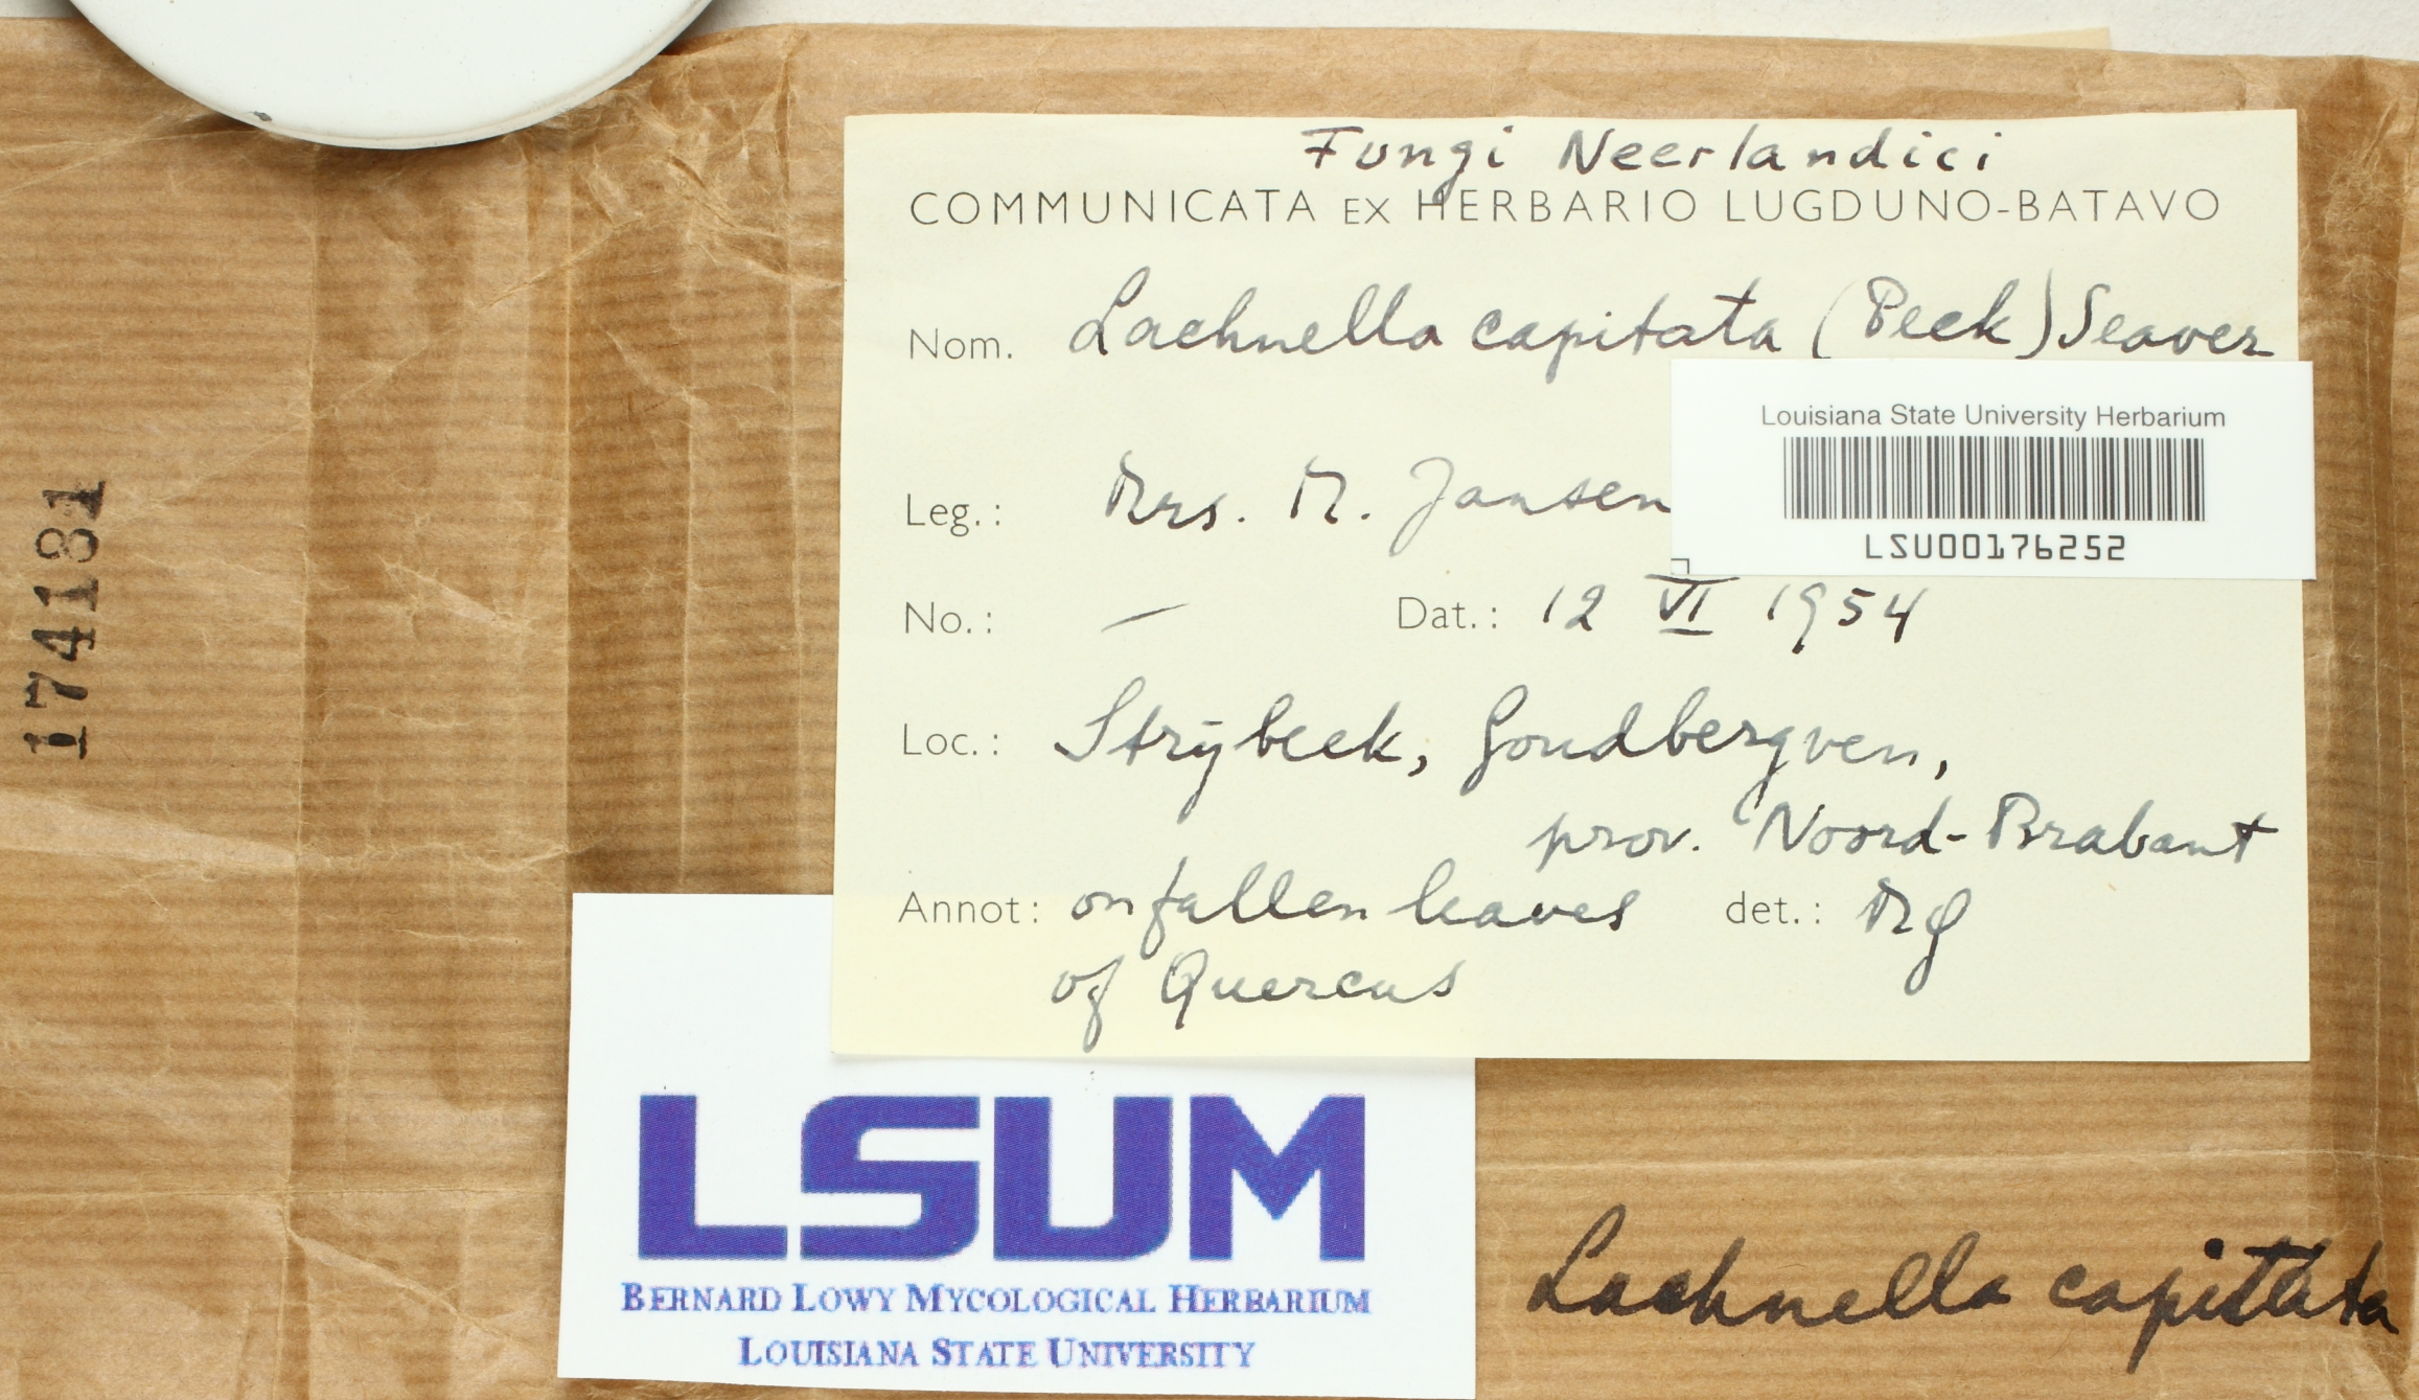 Fungi Neerlandici
COMMUNICATA EX HERBARIO LUGDUNO-BATAVO
Nom. Lachnella capitata (Peck) Seaver
Louisiana State University Herbarium
LSU00176252
Leg.: Mrs. M. Jansen
No.: — Dat.: 12 VI 1954
Loc.: Strijbeek, Goudbergven,
prov. Noord-Brabant
Annot: on fallen leaves det.:
of Quercus
174181
LSUM
BERNARD LOWY MYCOLOGICAL HERBARIUM
LOUISIANA STATE UNIVERSITY
Lachnella capitata